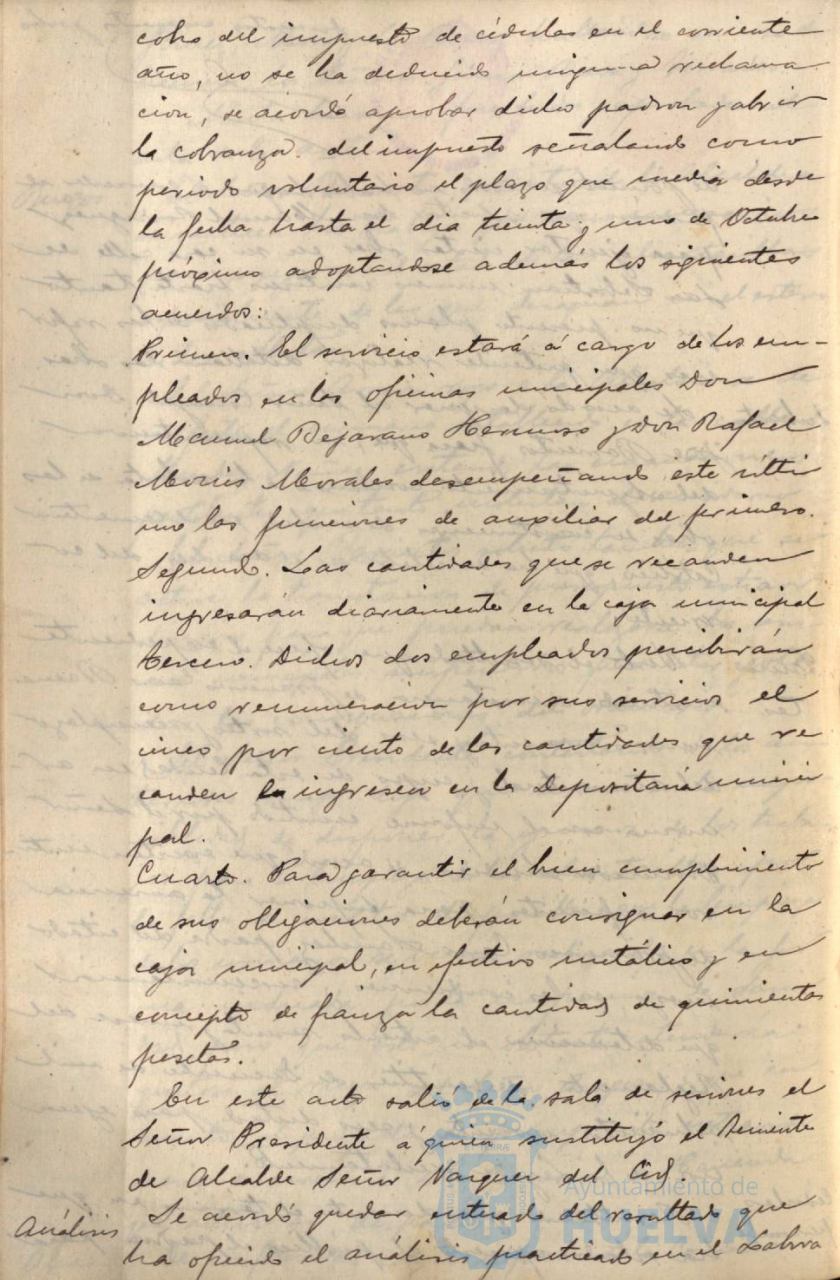 cobro del impuesto de cédulas en el corriente
año, no se ha deducido ninguna reclama
cion, se acordó aprobar dicho padron y abrir
la cobranza del impuesto señalando como
periodo voluntario el plazo que media desde
la fecha hasta el dia treinta y uno de Octubre
próximo adoptandose además los siguientes
acuerdos:
Primero. El servicio estará á cargo de los em-
pleados en las oficinas municipales Don
Manuel Bejarano Hermoso y Don Rafael
Morales desempeñando este ulti
mo las funciones de auxiliar del primero.
Segundo. Las cantidades que se recauden
ingresarán diariamente en la caja municipal
tercero. Dichos dos empleados percibirán
como remuneracion por sus servicios el
cinco por ciento de las cantidades que re
cauden é ingresen en la Depositaría munici
pal.
Cuarto. Para garantir el buen cumplimiento
de sus obligaciones deberán consignar en la
caja municipal, en efectivo metálico y en
concepto de fianza la cantidad de quinientas
pesetas.
En este acto salió de la sala de sesiones el
Señor Presidente á quien sustituyó el Teniente
de Alcalde Señor Vazquez del Cid.
Análisis Se acordó quedar enterado del resultado que
ha ofrecido el análisis practicado en el Labora
Ayuntamiento de
HUELVA